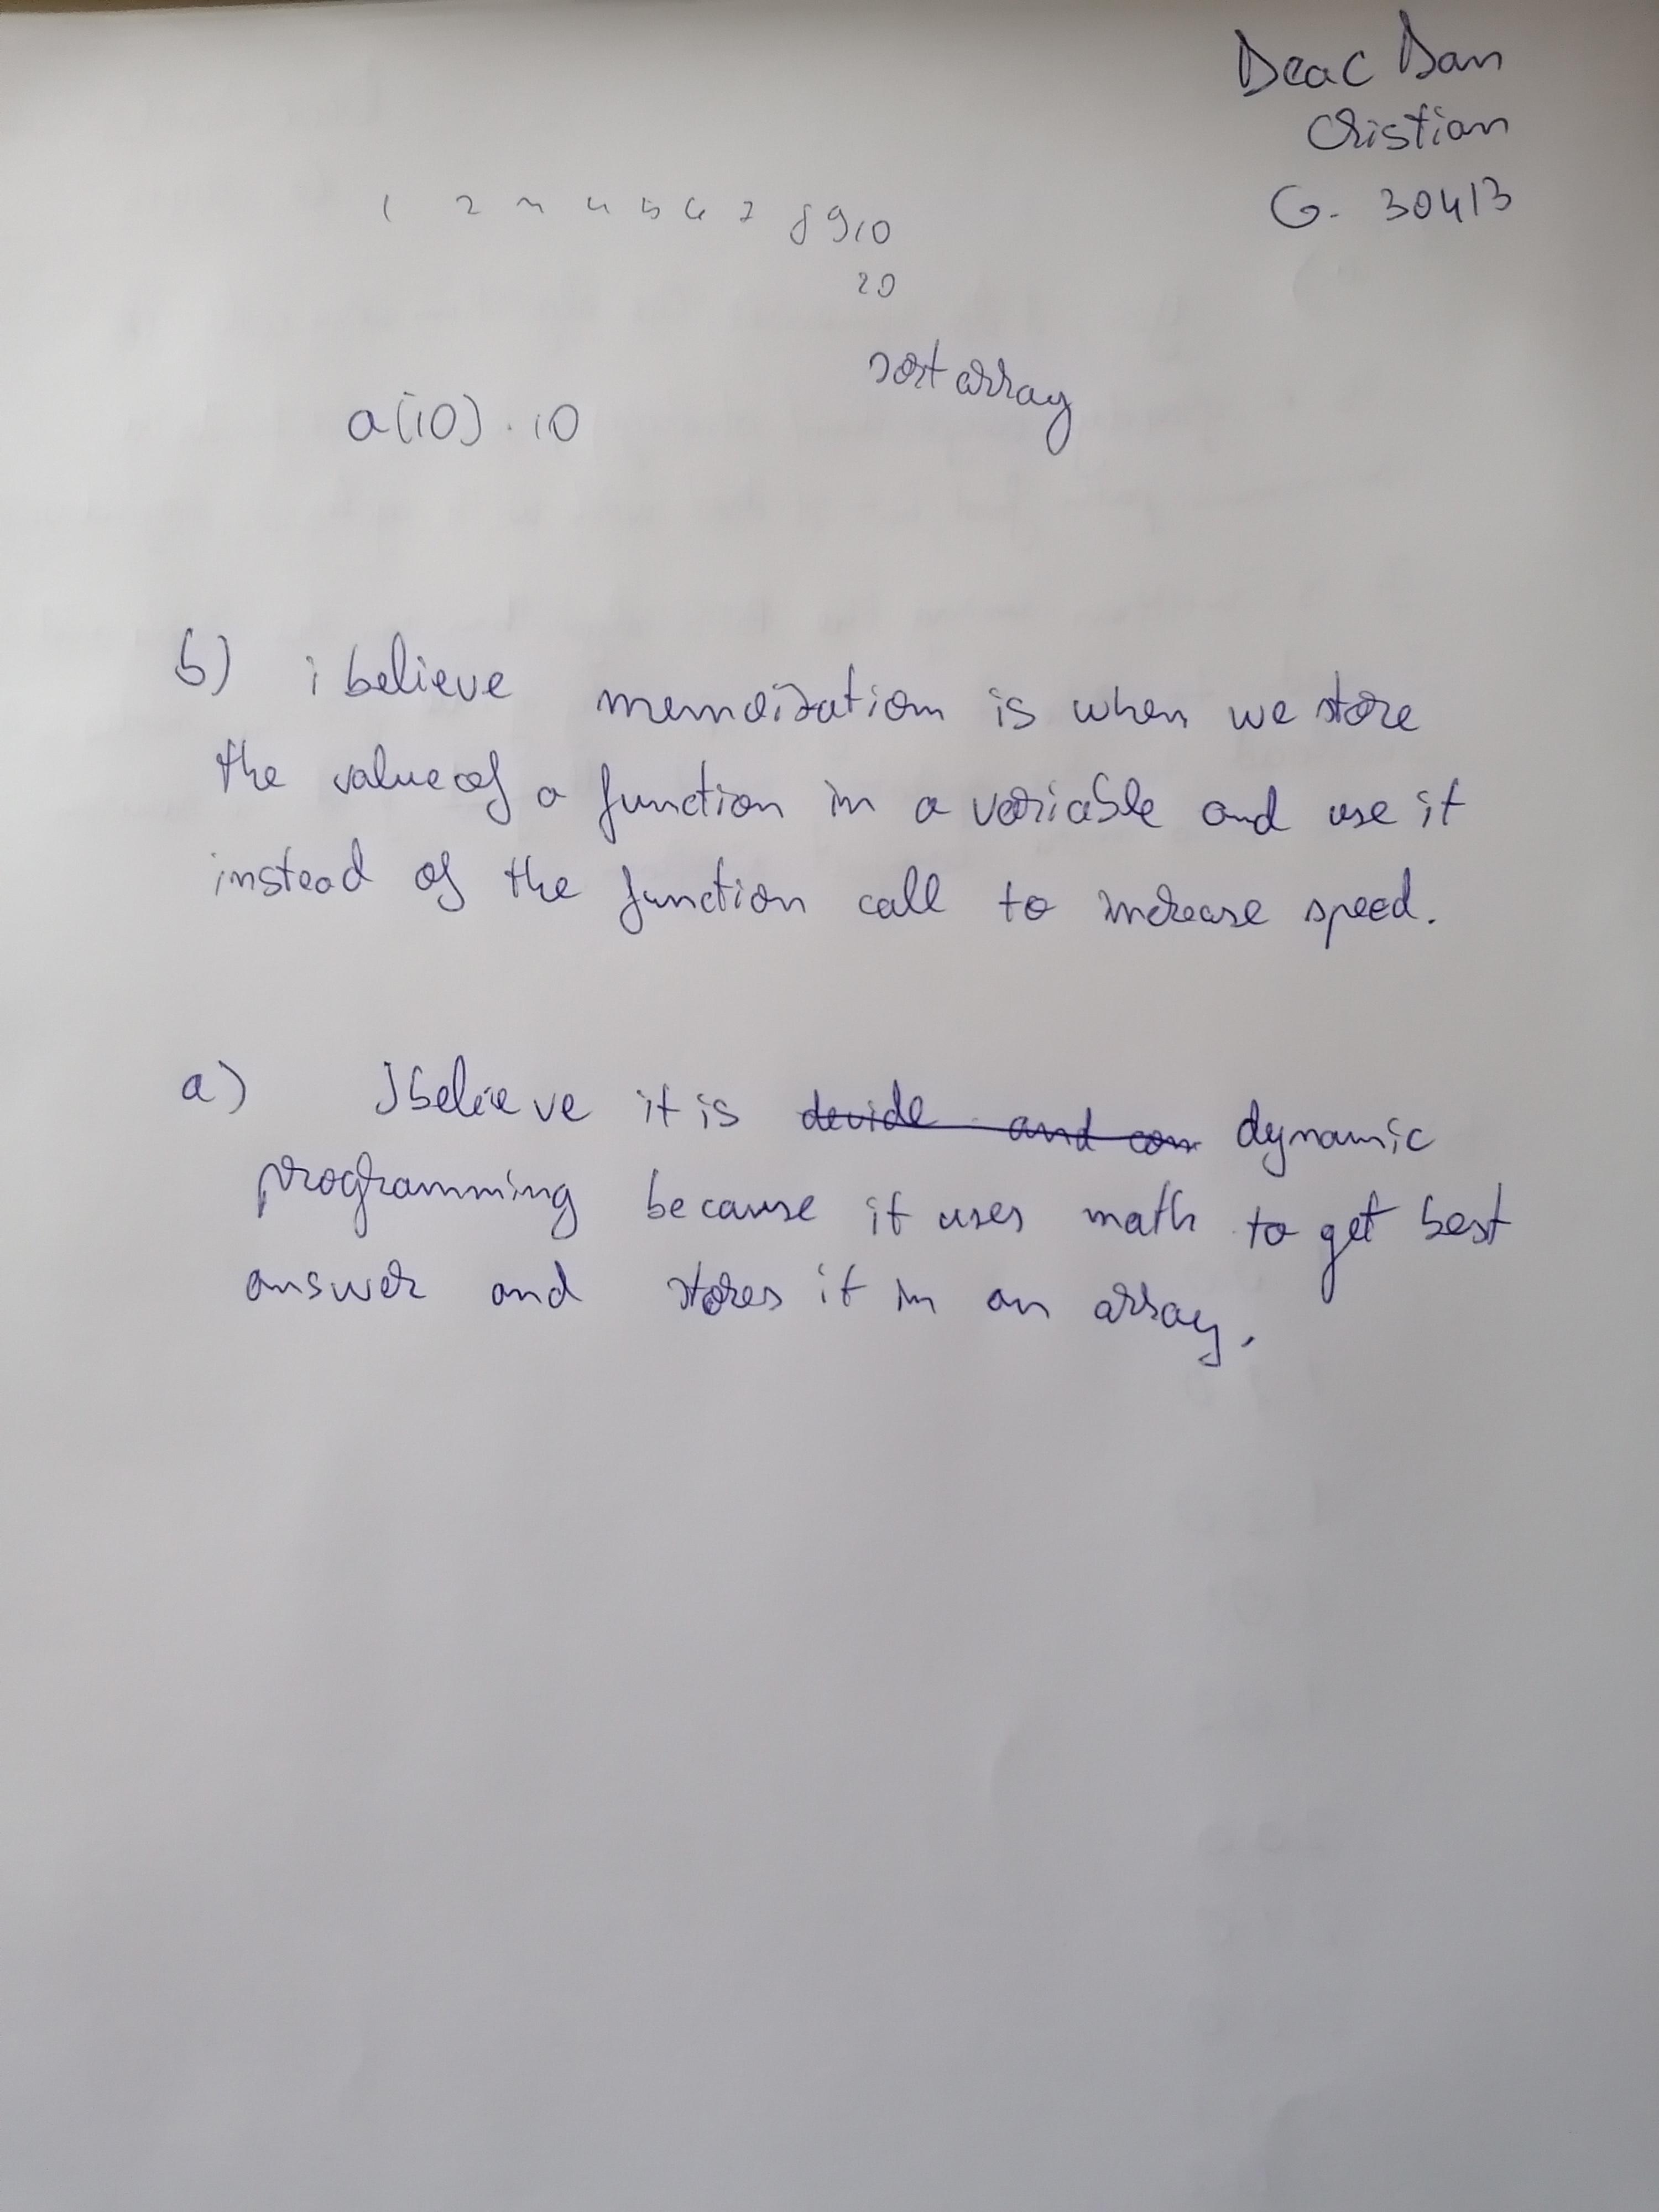 Deac Dan
Cristian
G. 30413
1 2 3 4 5 6 7 8 9 10
20
sort array
a(10) . 10
b) i believe memoization is when we store
the value of a function in a variable and use it
instead of the function call to increase speed.
a) I believe it is devide and con dynamic
programming because it uses math to get best
answer and stores it in an array.